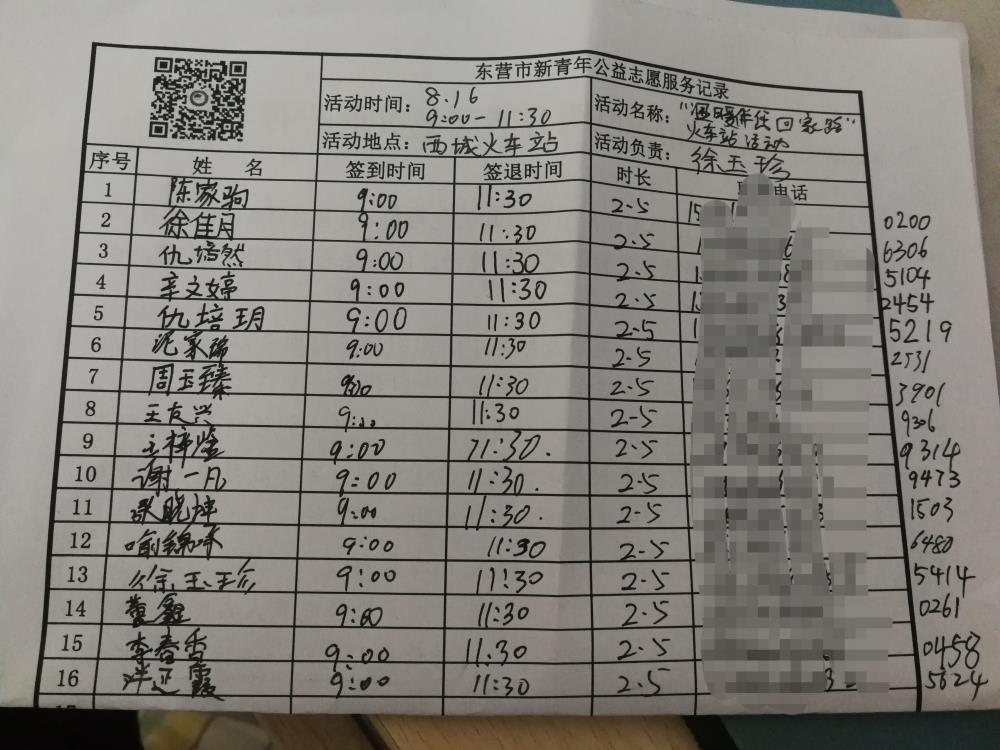 东营市新青年公益志愿服务记录
活动时间: 8.16 9:00-11:30
活动名称: "温暖伴你回家路" 火车站活动
活动地点: 西城火车站
活动负责: 徐玉珍
序号 姓名 签到时间 签退时间 时长 电话
1 陈家驹 9:00 11:30 2.5 15 0200
2 徐佳月 9:00 11:30 2.5 6306
3 仇培然 9:00 11:30 2.5 5104
4 辛文婷 9:00 11:30 2.5 2454
5 仇培玥 9:00 11:30 2.5 5219
6 家瑞 9:00 11:30 2.5 2531
7 周玉臻 9:00 11:30 2.5 3901
8 王友兴 9:00 11:30 2.5 9306
9 王梓 9:00 11:30. 2.5 9314
10 谢一凡 9:00 11:30. 2.5 9473
11 张晓 9:00 11:30. 2.5 1503
12 喻锦 9:00 11:30 2.5 6480
13 徐玉珍 9:00 11:30 2.5 5414
14 董鑫 9:00 11:30 2.5 0261
15 李春香 9:00 11:30 2.5 0458
16 霞 9:00 11:30 2.5 5624